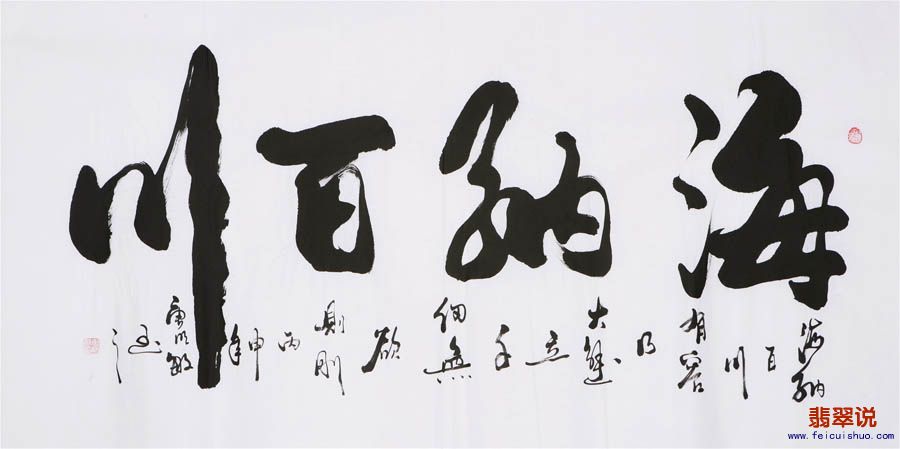 海納百川
海納百川有容乃大壁立千仞無欲則剛丙申年
翡翠说
www.feicuishuo.com